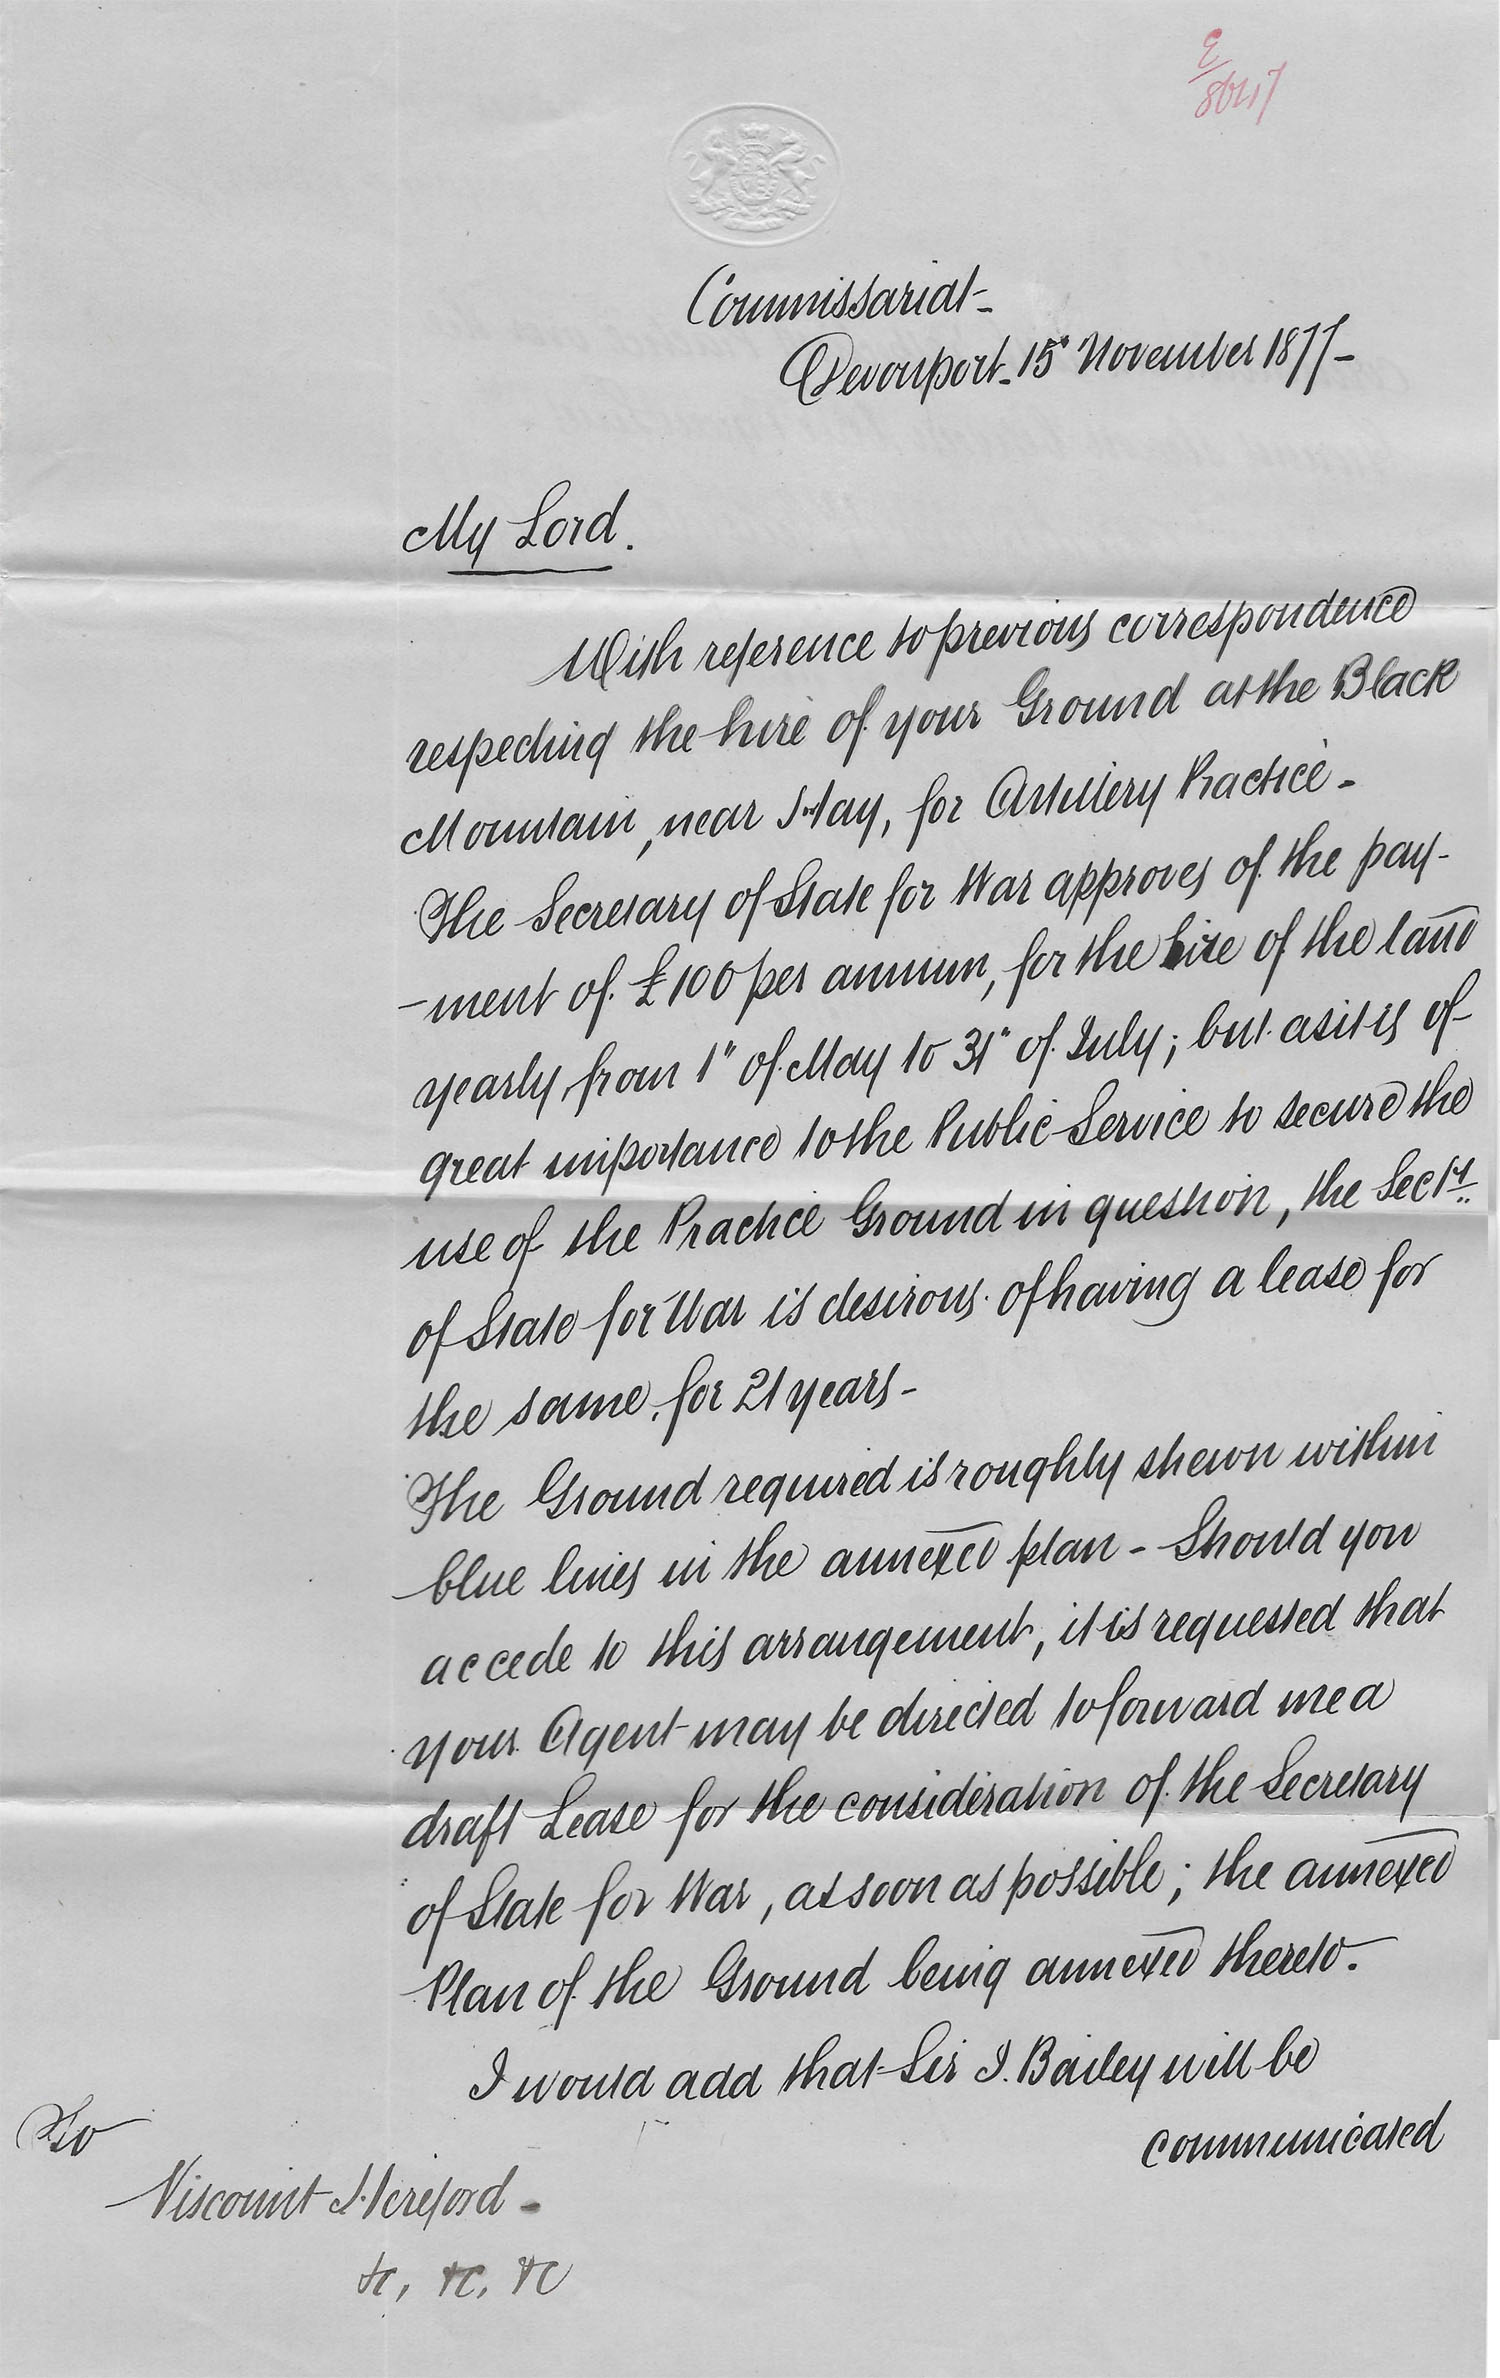 Commissariat -
Devonport - 15" November 1877 -
My Lord.
With reference to previous correspondence
respecting the hire of your Ground at the Black
Mountain, near Hay, for Artillery Practice -
The Secretary of State for War approves of the pay-
-ment of £100 per annum, for the hire of the land
yearly, from 1" of May to 31" of July; but as it is of
great importance to the Public Service to secure the
use of the Practice Ground in question, the Secry.
of State for War is desirous of having a lease for
the same, for 21 years -
The Ground required is roughly shewn within
blue lines in the annexed plan - Should you
accede to this arrangement, it is requested that
your Agent may be directed to forward me a
draft Lease for the consideration of the Secretary
of State for War, as soon as possible; the annexed
Plan of the Ground being annexed thereto.
I would add that Sir J. Bailey will be
communicated
To
Viscount Hereford -
&c, &c, &c